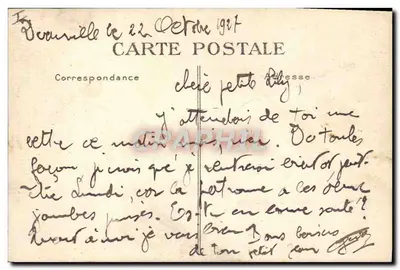 Deauville le 22 Octobre 1927
CARTE POSTALE
Correspondance
Adresse
chère petite Lily,
j'attendais de toi une
lettre ce matin mais rien. De toutes
façon je crois que je rentrerai bientot peut
être Lundi, car la patronne a ces deux
jambes prises. Es-tu en bonne santé?
Quant à moi je vais bien Bons baisers
de ton petit